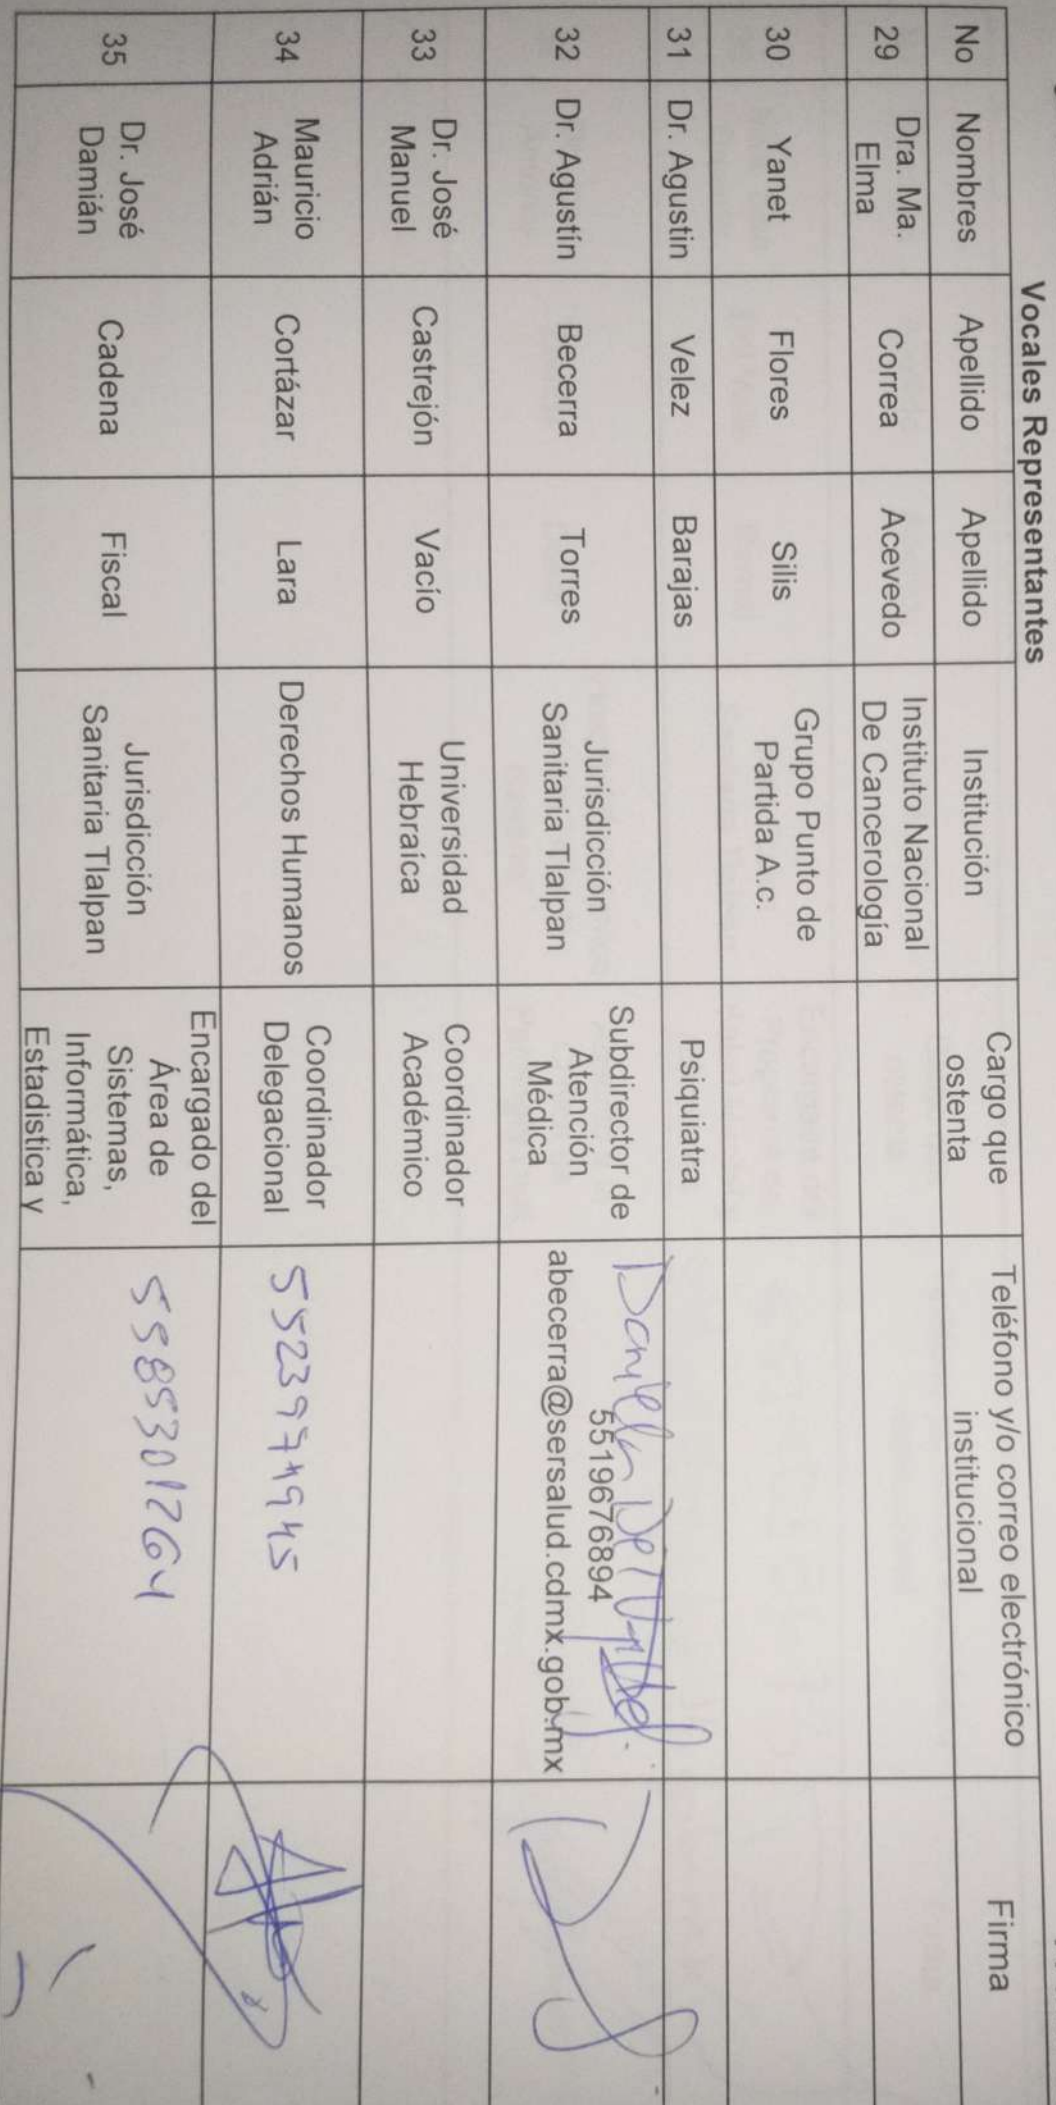 Vocales Representantes
No Nombres Apellido Apellido Institución Cargo que ostenta Teléfono y/o correo electrónico institucional Firma
29 Dra. Ma. Elma Correa Acevedo Instituto Nacional De Cancerología
30 Yanet Flores Silis Grupo Punto de Partida A.c.
31 Dr. Agustin Velez Barajas Psiquiatra
32 Dr. Agustín Becerra Torres Jurisdicción Sanitaria Tlalpan Subdirector de Atención Médica Daniela Del 5519676894 abecerra@sersalud.cdmx.gob.mx
33 Dr. José Manuel Castrejón Vacío Universidad Hebraíca Coordinador Académico
34 Mauricio Adrián Cortázar Lara Derechos Humanos Coordinador Delegacional
35 Dr. José Damián Cadena Fiscal Jurisdicción Sanitaria Tlalpan Encargado del Área de Sistemas, Informática, Estadistica y 5585301264